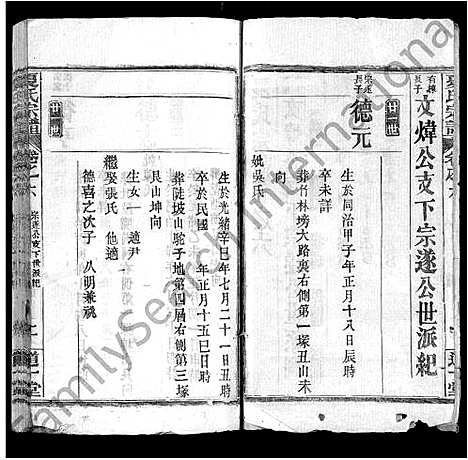 文煒公支下宗遂公世派紀
有穗
長子
廿二世
宗遂
長子
德元
生於同治甲子年正月十八日辰時
卒未詳
葬竹林塝大路裏右側第一塚丑山未
妣吳氏
生於光緒辛巳年七月二十一日丑時
卒於民國 年正月十五巳日時
葬陡坡山駝子地第四層右側第三塚
艮山坤向
繼娶張氏 他適
生女一 適尹
德喜之次子 八明兼祧
廿三世
夏氏宗譜
卷之六
宗遂公支下世派紀
道一堂
FamilySearch International